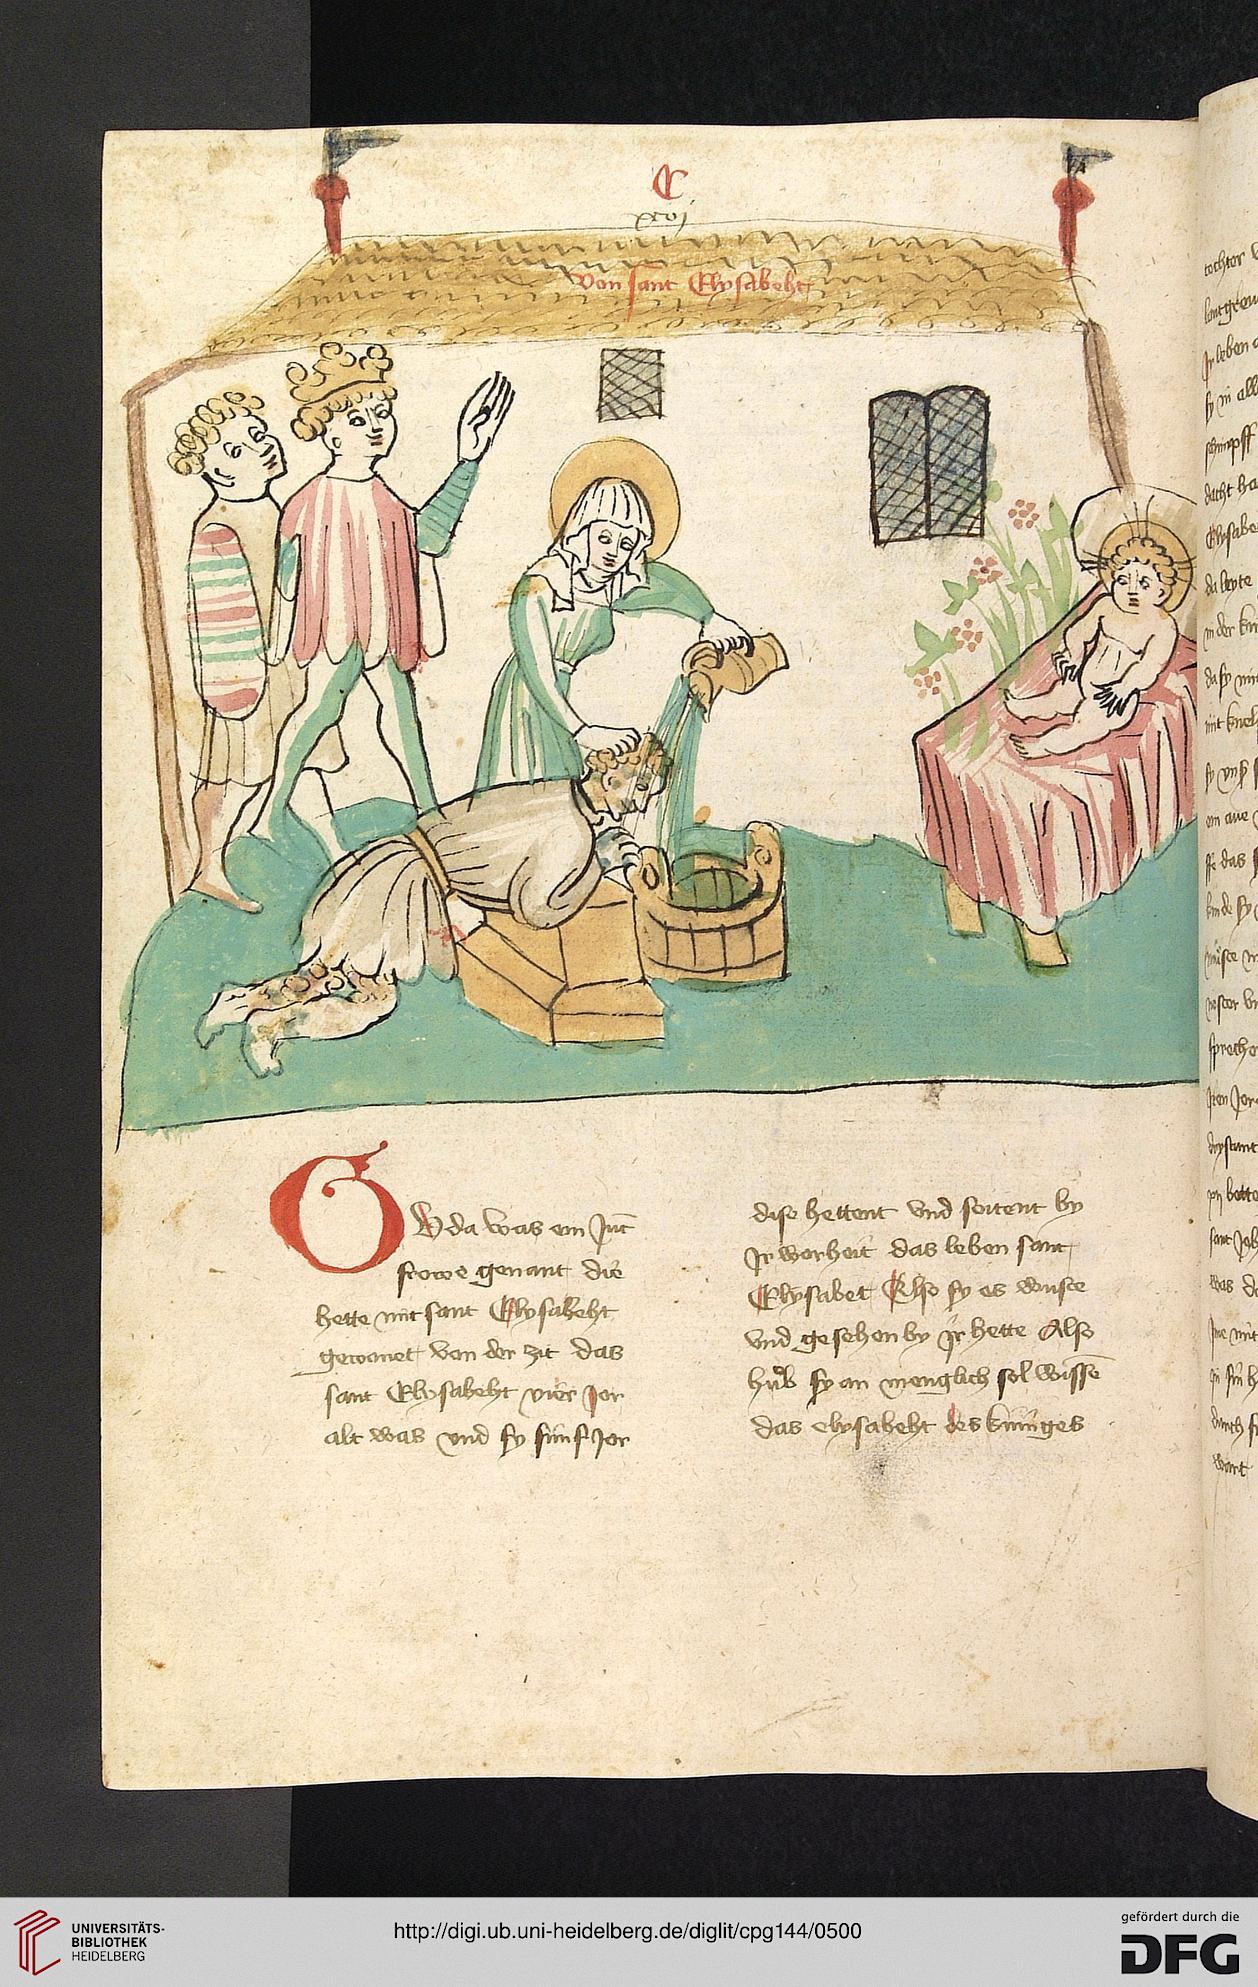 C
xcvj
von sant Elysabeht
Gvda was ein Junc
frowe genant die
hette mit sant Elysabeht
gewonet von der zit das
sant Elysabeht vier Jor
alt was vnd sy fúnf Jor
dise hettent vnd seitent by
Jr worheit das leben sant
Elysabet Also sy es wuste
vnd gesehen by jr hette Also
hůb sy an menglich sol wissē
das elysabeht des kúniges
tochter
Jr leben
sy in
schimpff
dacht
Elysabe
da
in der
da sy
mit
sy
ein aue
das
kinde sy
noster
spreche
sant
was
wart
UNIVERSITÄTS-
BIBLIOTHEK
HEIDELBERG
http://digi.ub.uni-heidelberg.de/diglit/cpg144/0500
gefördert durch die
DFG